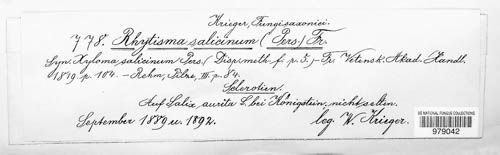 Krieger, Fungi saxonici.
778. Rhytisma salicinum (Pers.) Fr.
Syn: Xyloma salicinum Pers. (Disp. meth. f. p. 5. – Fr. Vetensk. Akad. Handl.
1819. p. 104. – Rehm, Pilze, III. p. 84.
Sclerotien.
Auf Salix aurita L. bei Königstein, nicht selten.
September 1889 u. 1892. leg. W. Krieger.
US NATIONAL FUNGUS COLLECTIONS
979042